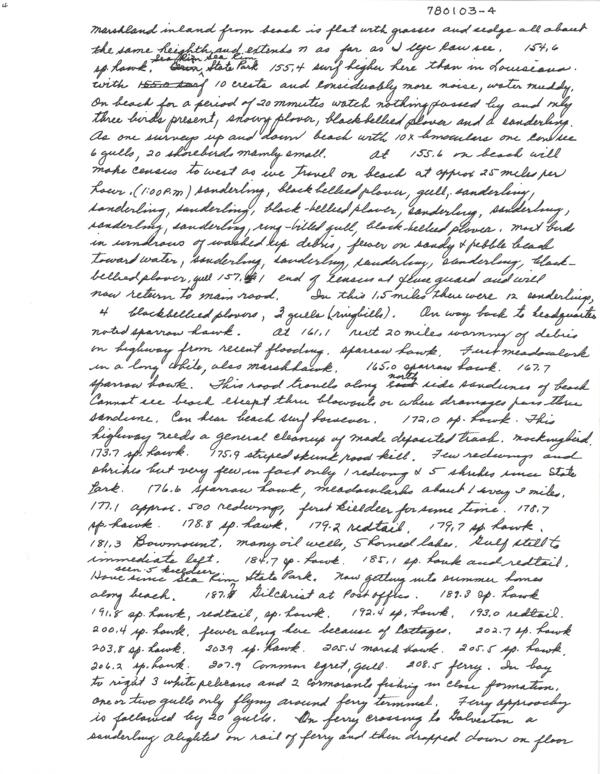 780103-4
marshland inland from beach is flat with grasses and sedge all about
the same heighth and extends n as far as I eye can see. 154.6
sp. hawk. Sea Rim State Park 155.4 surf higher here than in Louisiana.
with 10 crests and considerably more noise, water muddy.
On beach for a period of 20 minutes watch nothing passed by and only
three birds present, snowy plover, black bellied plover and a sanderling.
As one surveys up and down beach with 10x binoculars one can see
6 gulls, 20 shorebirds mainly small. At 155.6 on beach will
make census to west as we travel on beach at approx 25 miles per
hour. (1:00 P.M) sanderling, black bellied plover, gull, sanderling,
sanderling, sanderling, black-bellied plover, sanderling, sanderling,
sanderling, sanderling, ring-billed gull, black-bellied plover. most birds
in windrows of washed up debris, fewer on sandy & pebble beach
toward water, sanderling, sanderling, sanderling, sanderling, black-
bellied plover, gull 157.1 end of census at guard and will
now return to main road. In this 1.5 miles there were 12 sanderlings,
4 blackbellied plovers, 3 gulls (ringbills). On way back to headquarters
noted sparrow hawk. At 161.1 next 20 miles warning of debris
on highway from recent flooding. sparrow hawk. First meadowlark
in a long while, also marsh hawk. 165.0 sparrow hawk. 167.7
sparrow hawk. This road travels along north side sand dunes of beach
Cannot see beach except thru blowouts or where drainages pass thru
sand dune. Can hear beach surf however. 172.0 sp. hawk. This
highway needs a general cleanup of made deposited trash. mockingbird.
173.7 sp. hawk. 175.9 striped skunk, road kill. Few redwings and
shrikes but very few, in fact only 1 redwing & 5 shrikes since State
Park. 176.6 sparrow hawk, meadowlarks about 1 every 3 miles.
177.1 approx. 500 redwings, first killdeer for some time. 178.7
sp. hawk. 178.8 sp. hawk. 179.2 redtail. 179.7 sp. hawk.
181.3 many oil wells, 5 horned larks. Gulf still to
immediate left. 184.7 sp. hawk. 185.1 sp. hawk and redtail.
Have seen 5 killdeer since Sea Rim State Park. Now getting into summer homes
along beach. 187.8 Gilchrist at Post office. 189.3 sp. hawk
191.8 sp. hawk, redtail, sp. hawk. 192.4 sp. hawk. 193.0 redtail.
200.4 sp. hawk. fewer along here because of Cottages. 202.7 sp. hawk
203.8 sp. hawk. 203.9 sp. hawk. 205.4 marsh hawk. 205.5 sp. hawk.
206.2 sp. hawk. 207.9 Common egret, gull. 208.5 ferry. In bay
to right 3 white pelicans and 2 cormorants fishing in close formation.
one or two gulls only flying around ferry terminal. Ferry approaching
is followed by 20 gulls. On ferry crossing to Galveston a
sanderling alighted on rail of ferry and then dropped down on floor